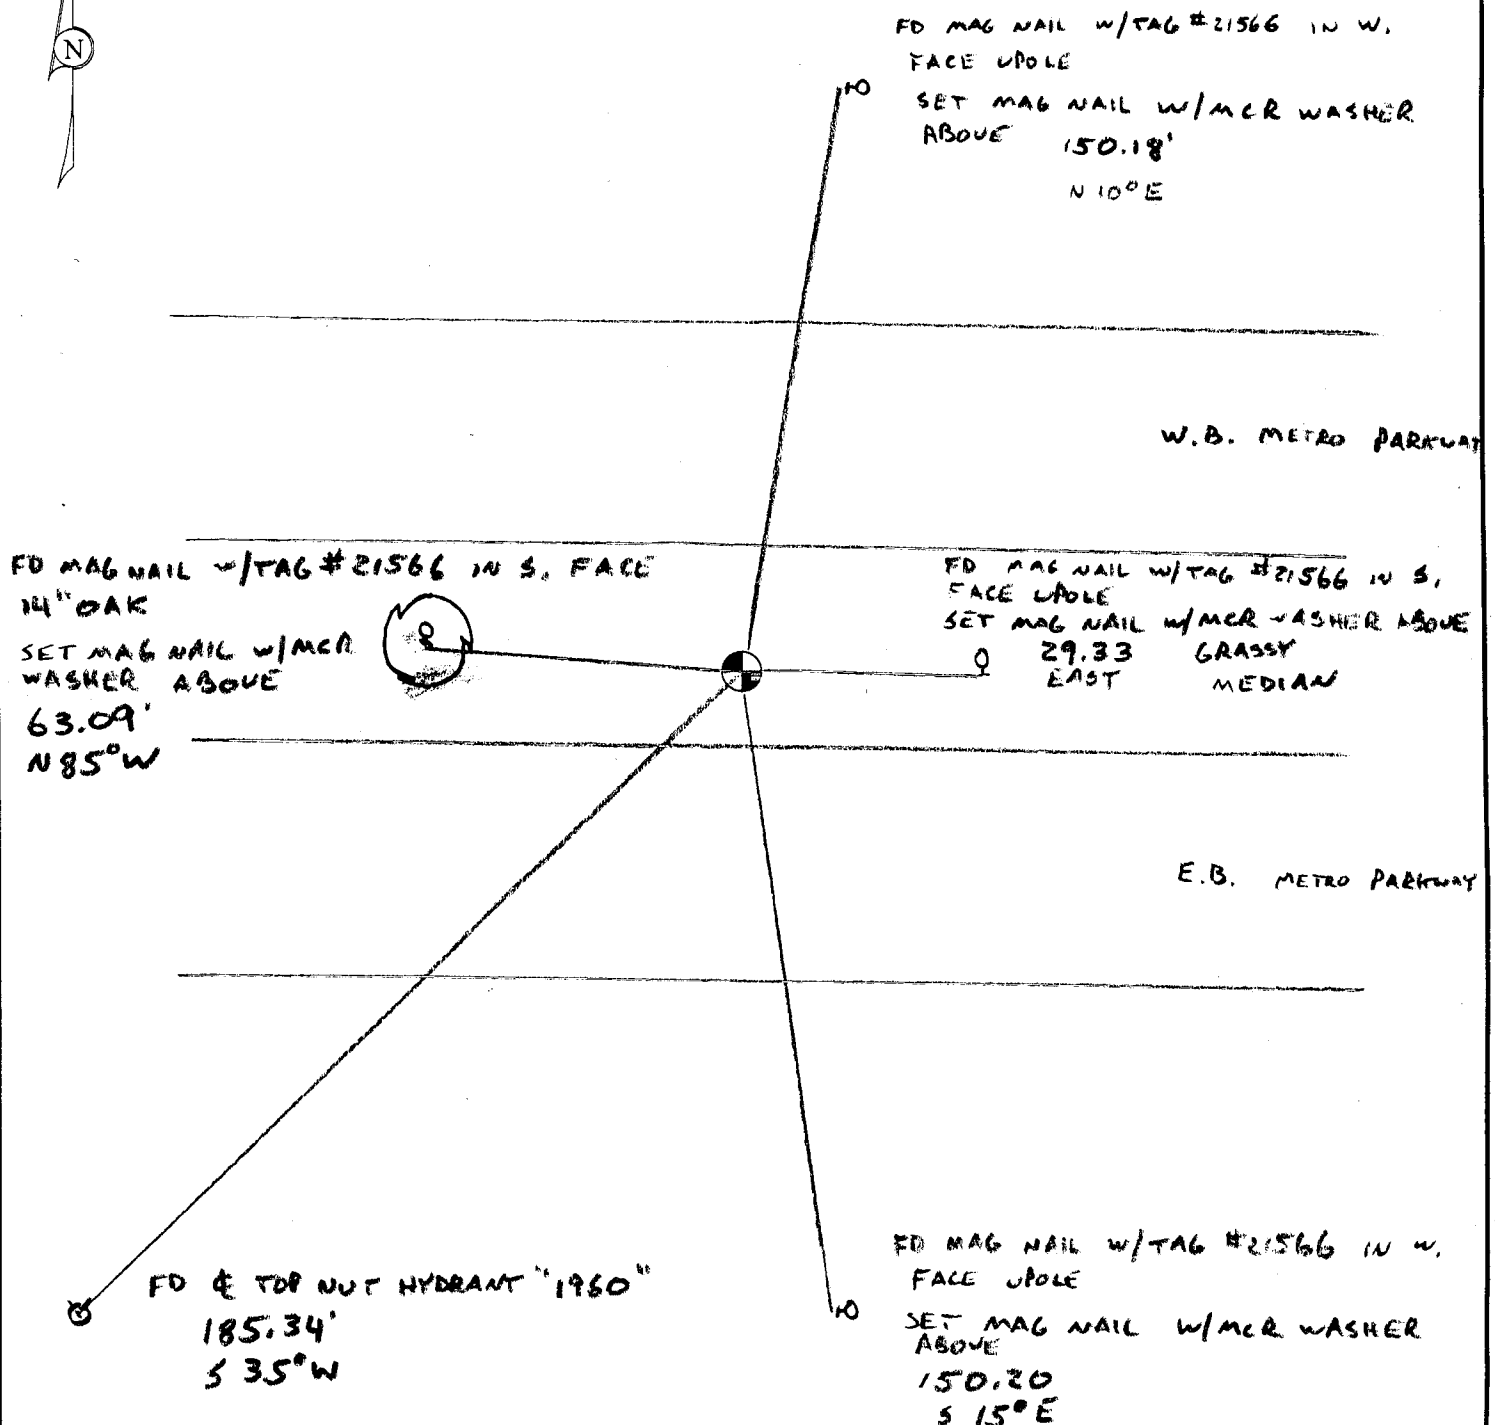 N
FD MAG NAIL W/TAG #21566 IN W.
FACE UPOLE
SET MAG NAIL W/MCR WASHER
ABOVE 150.18'
N 10° E
W.B. METRO PARKWAY
FD MAG NAIL W/TAG #21566 IN S. FACE
14" OAK
SET MAG NAIL W/MCR
WASHER ABOVE
63.09'
N 85° W
FD MAG NAIL W/TAG #21566 IN S.
FACE UPOLE
SET MAG NAIL W/MCR WASHER ABOVE
29.33 GRASSY
EAST MEDIAN
E.B. METRO PARKWAY
FD ℄ TOP NUT HYDRANT "1960"
185.34'
S 35° W
FD MAG NAIL W/TAG #21566 IN W.
FACE UPOLE
SET MAG NAIL W/MCR WASHER
ABOVE
150.20
S 15° E